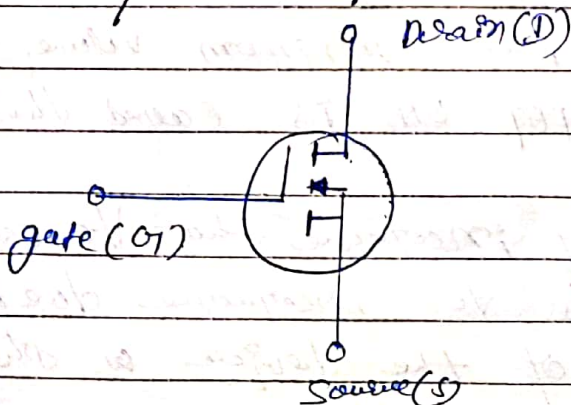 Drain(D)
gate(G)
Source(S)